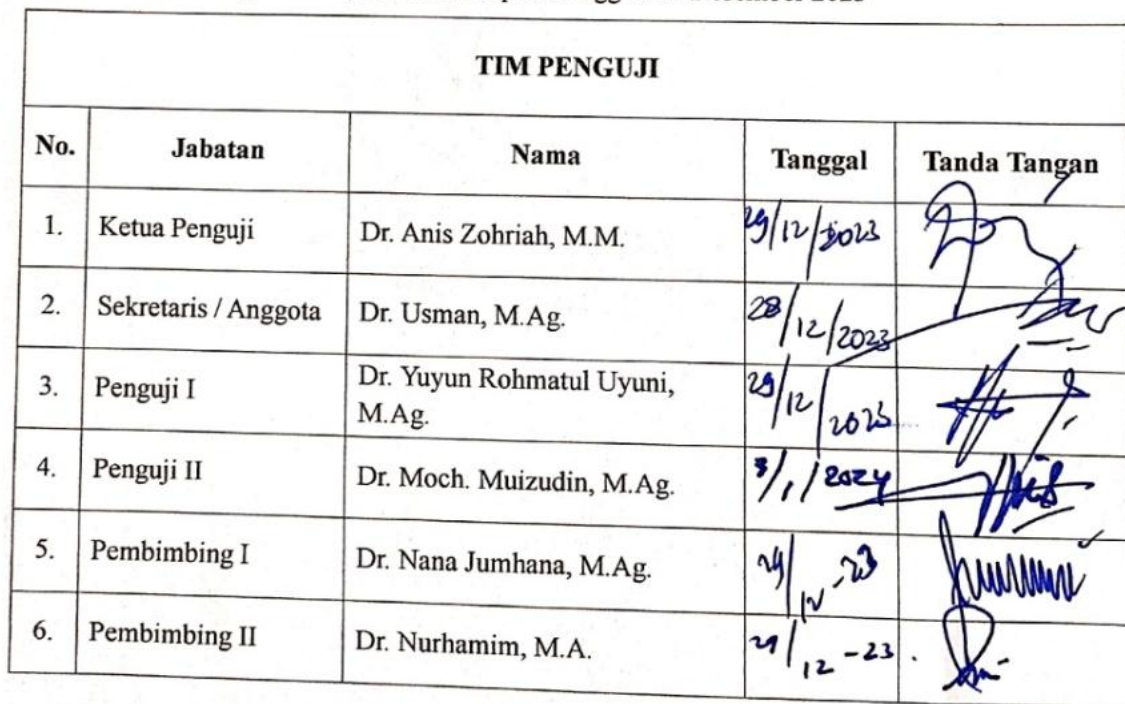 2023
TIM PENGUJI
No. Jabatan Nama Tanggal Tanda Tangan
1. Ketua Penguji Dr. Anis Zohriah, M.M. 29/12/2023
2. Sekretaris / Anggota Dr. Usman, M.Ag. 28/12/2023
3. Penguji I Dr. Yuyun Rohmatul Uyuni,
M.Ag. 29/12/2023
4. Penguji II Dr. Moch. Muizudin, M.Ag. 3/1/2024
5. Pembimbing I Dr. Nana Jumhana, M.Ag. 29/12-23
6. Pembimbing II Dr. Nurhamim, M.A. 29/12-23